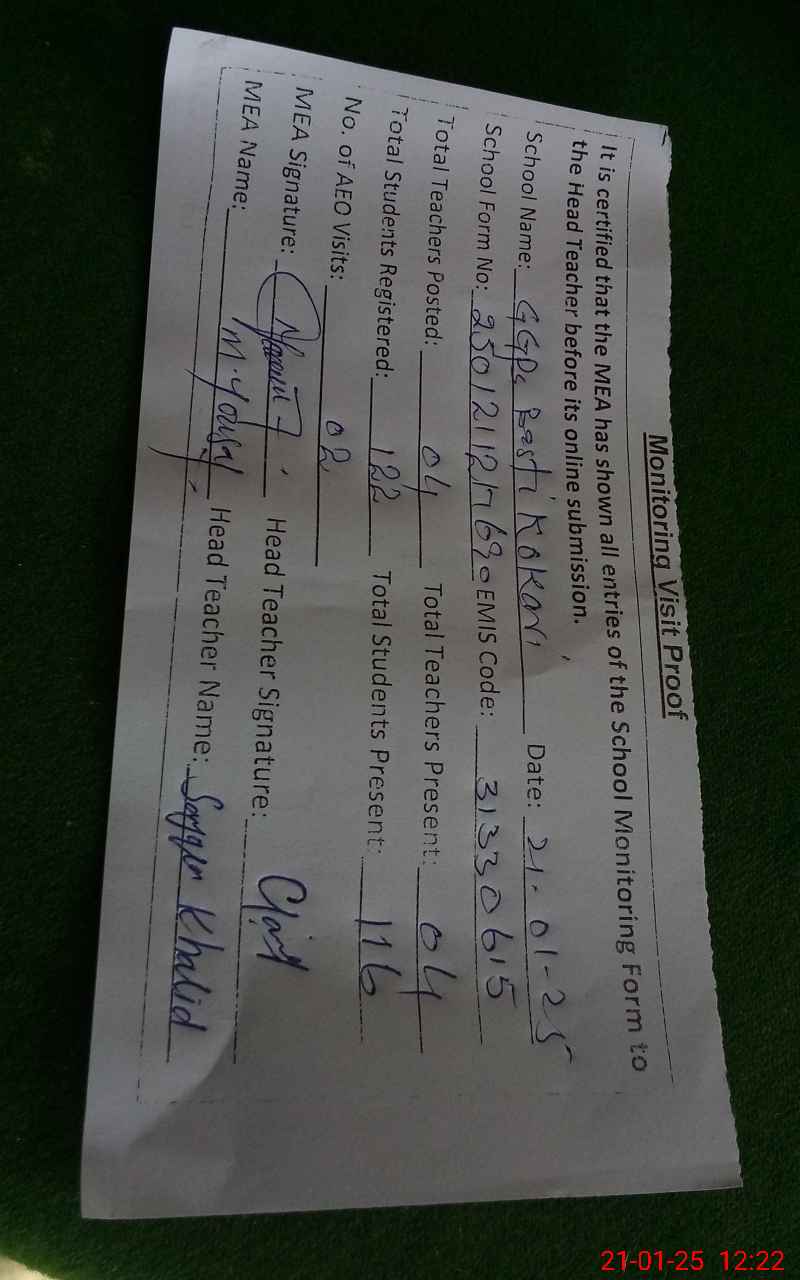 Monitoring Visit Proof
It is certified that the MEA has shown all entries of the School Monitoring Form to
the Head Teacher before its online submission.
School Name: GGPS Basti Kokari Date: 21-01-25
School Form No: 2501211217690 EMIS Code: 31330615
Total Teachers Posted: 04 Total Teachers Present: 04
Total Students Registered: 122 Total Students Present: 116
No. of AEO Visits: 02
MEA Signature: Head Teacher Signature:
MEA Name: M. Yousaf Head Teacher Name: Khalid
21-01-25 12:22